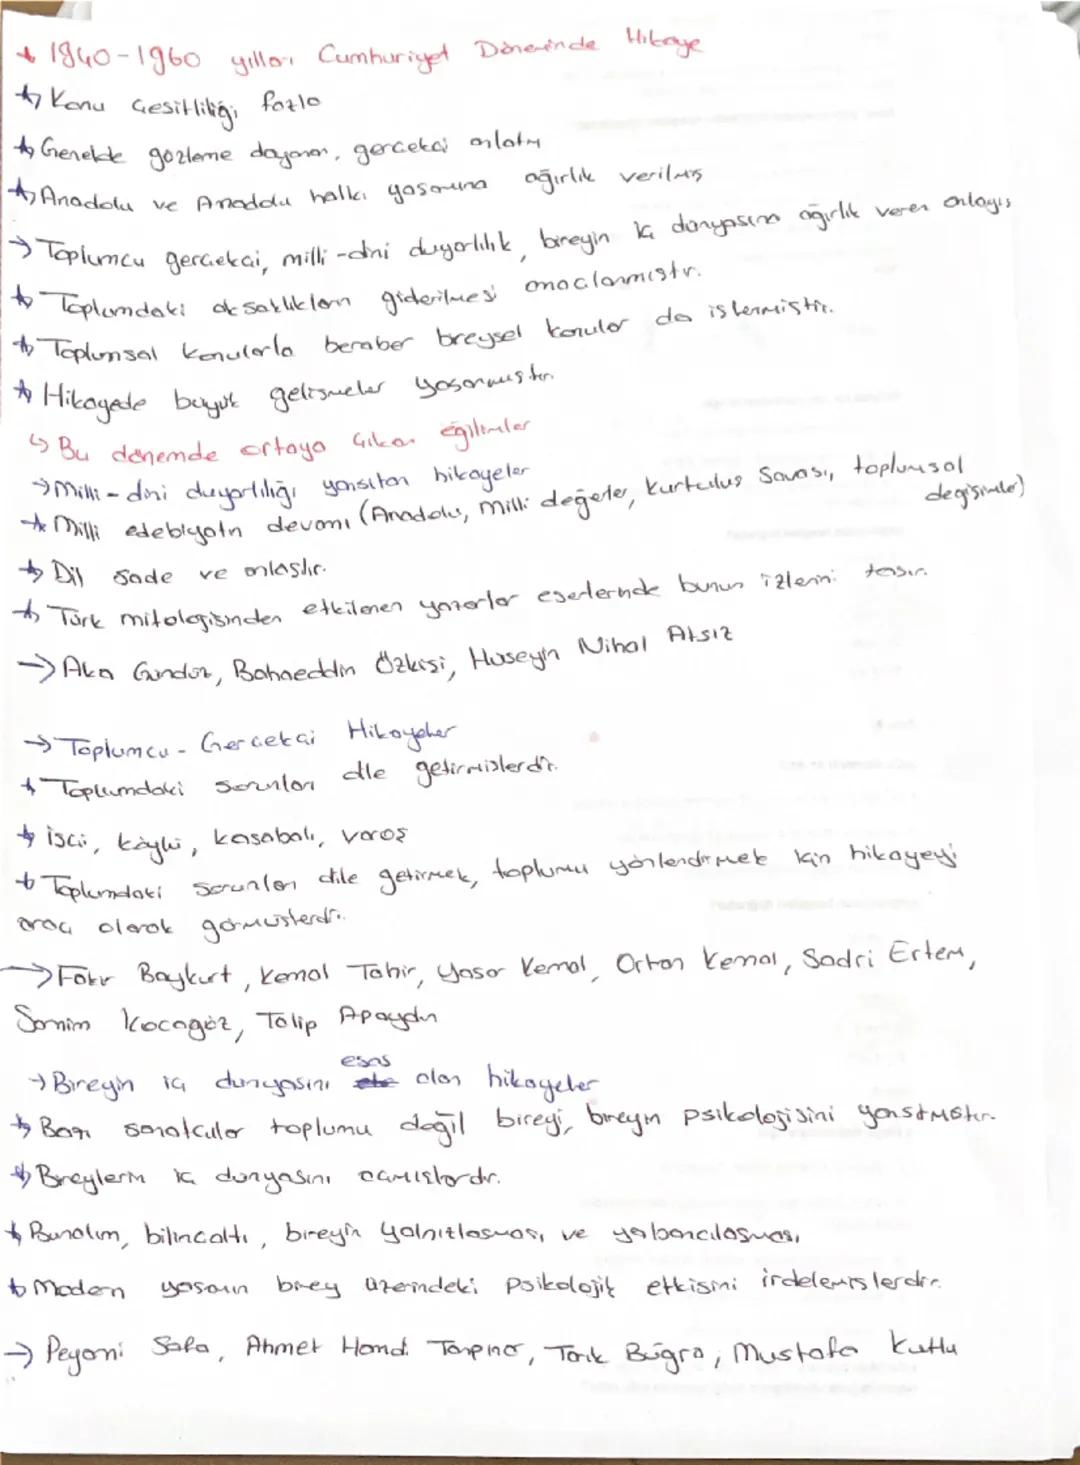 1940-1960 yılları Cumhuriyet Döneminde Hikaye
Konu Çeşitliliği fazla
Genelde gözleme dayanan, gerçekçi anlatım
Anadolu ve Anadolu halkı yaşamına ağırlık verilmiş
→ Toplumcu gerçekçi, milli-dini duyarlılık, bireyin iç dünyasına ağırlık veren anlayış
Toplumdaki aksaklıkların giderilmesi amaçlanmıştır.
Toplumsal konularla beraber bireysel konular da işlenmiştir.
Hikayede büyük gelişmeler yaşanmıştır.
↳ Bu dönemde ortaya çıkan eğilimler
→ Milli-dini duyarlılığı yansıtan hikayeler
Milli edebiyatın devamı (Anadolu, milli değerler, Kurtuluş Savaşı, toplumsal değişimler)
Dil sade ve anlaşılır.
Türk mitolojisinden etkilenen yazarlar eserlerinde bunun izlerini taşır.
→ Aka Gündüz, Bahaeddin Özkişi, Hüseyin Nihal Atsız
→ Toplumcu-Gerçekçi Hikayeler
Toplumdaki sorunları dile getirmişlerdir.
işçi, köylü, kasabalı, varoş
Toplumdaki sorunları dile getirmek, toplumu yönlendirmek için hikayeyi
araç olarak görmüşlerdir.
→ Fakir Baykurt, Kemal Tahir, Yaşar Kemal, Orhan Kemal, Sadri Ertem,
Samim Kocagöz, Talip Apaydın
→ Bireyin iç dünyasını esas alan hikayeler
Bazı sanatçılar toplumu değil bireyi, bireyin psikolojisini yansıtmıştır.
Bireylerin iç dünyasını açmışlardır.
Bunalım, bilinçaltı, bireyin yalnızlaşması ve yabancılaşması,
Modern yaşamın birey üzerindeki psikolojik etkisini irdelemişlerdir.
→ Peyami Safa, Ahmet Hamdi Tanpınar, Tarık Buğra, Mustafa Kutlu